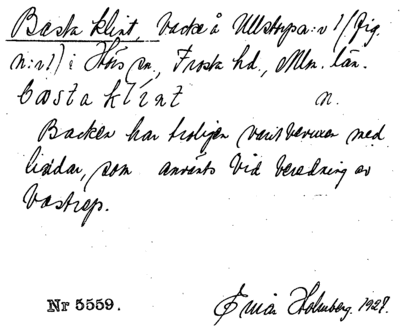 Basta klint backe å Ullstorpa:v 1/(fig.
n:r 1) i Hörs sn, Frosta hd., Mlm. län.
bastaklint n.
Backen har troligen varit bevuxen med
lindar, som använts vid beredning av
bastrep.
Nr 5559.
Holmberg. 1927.